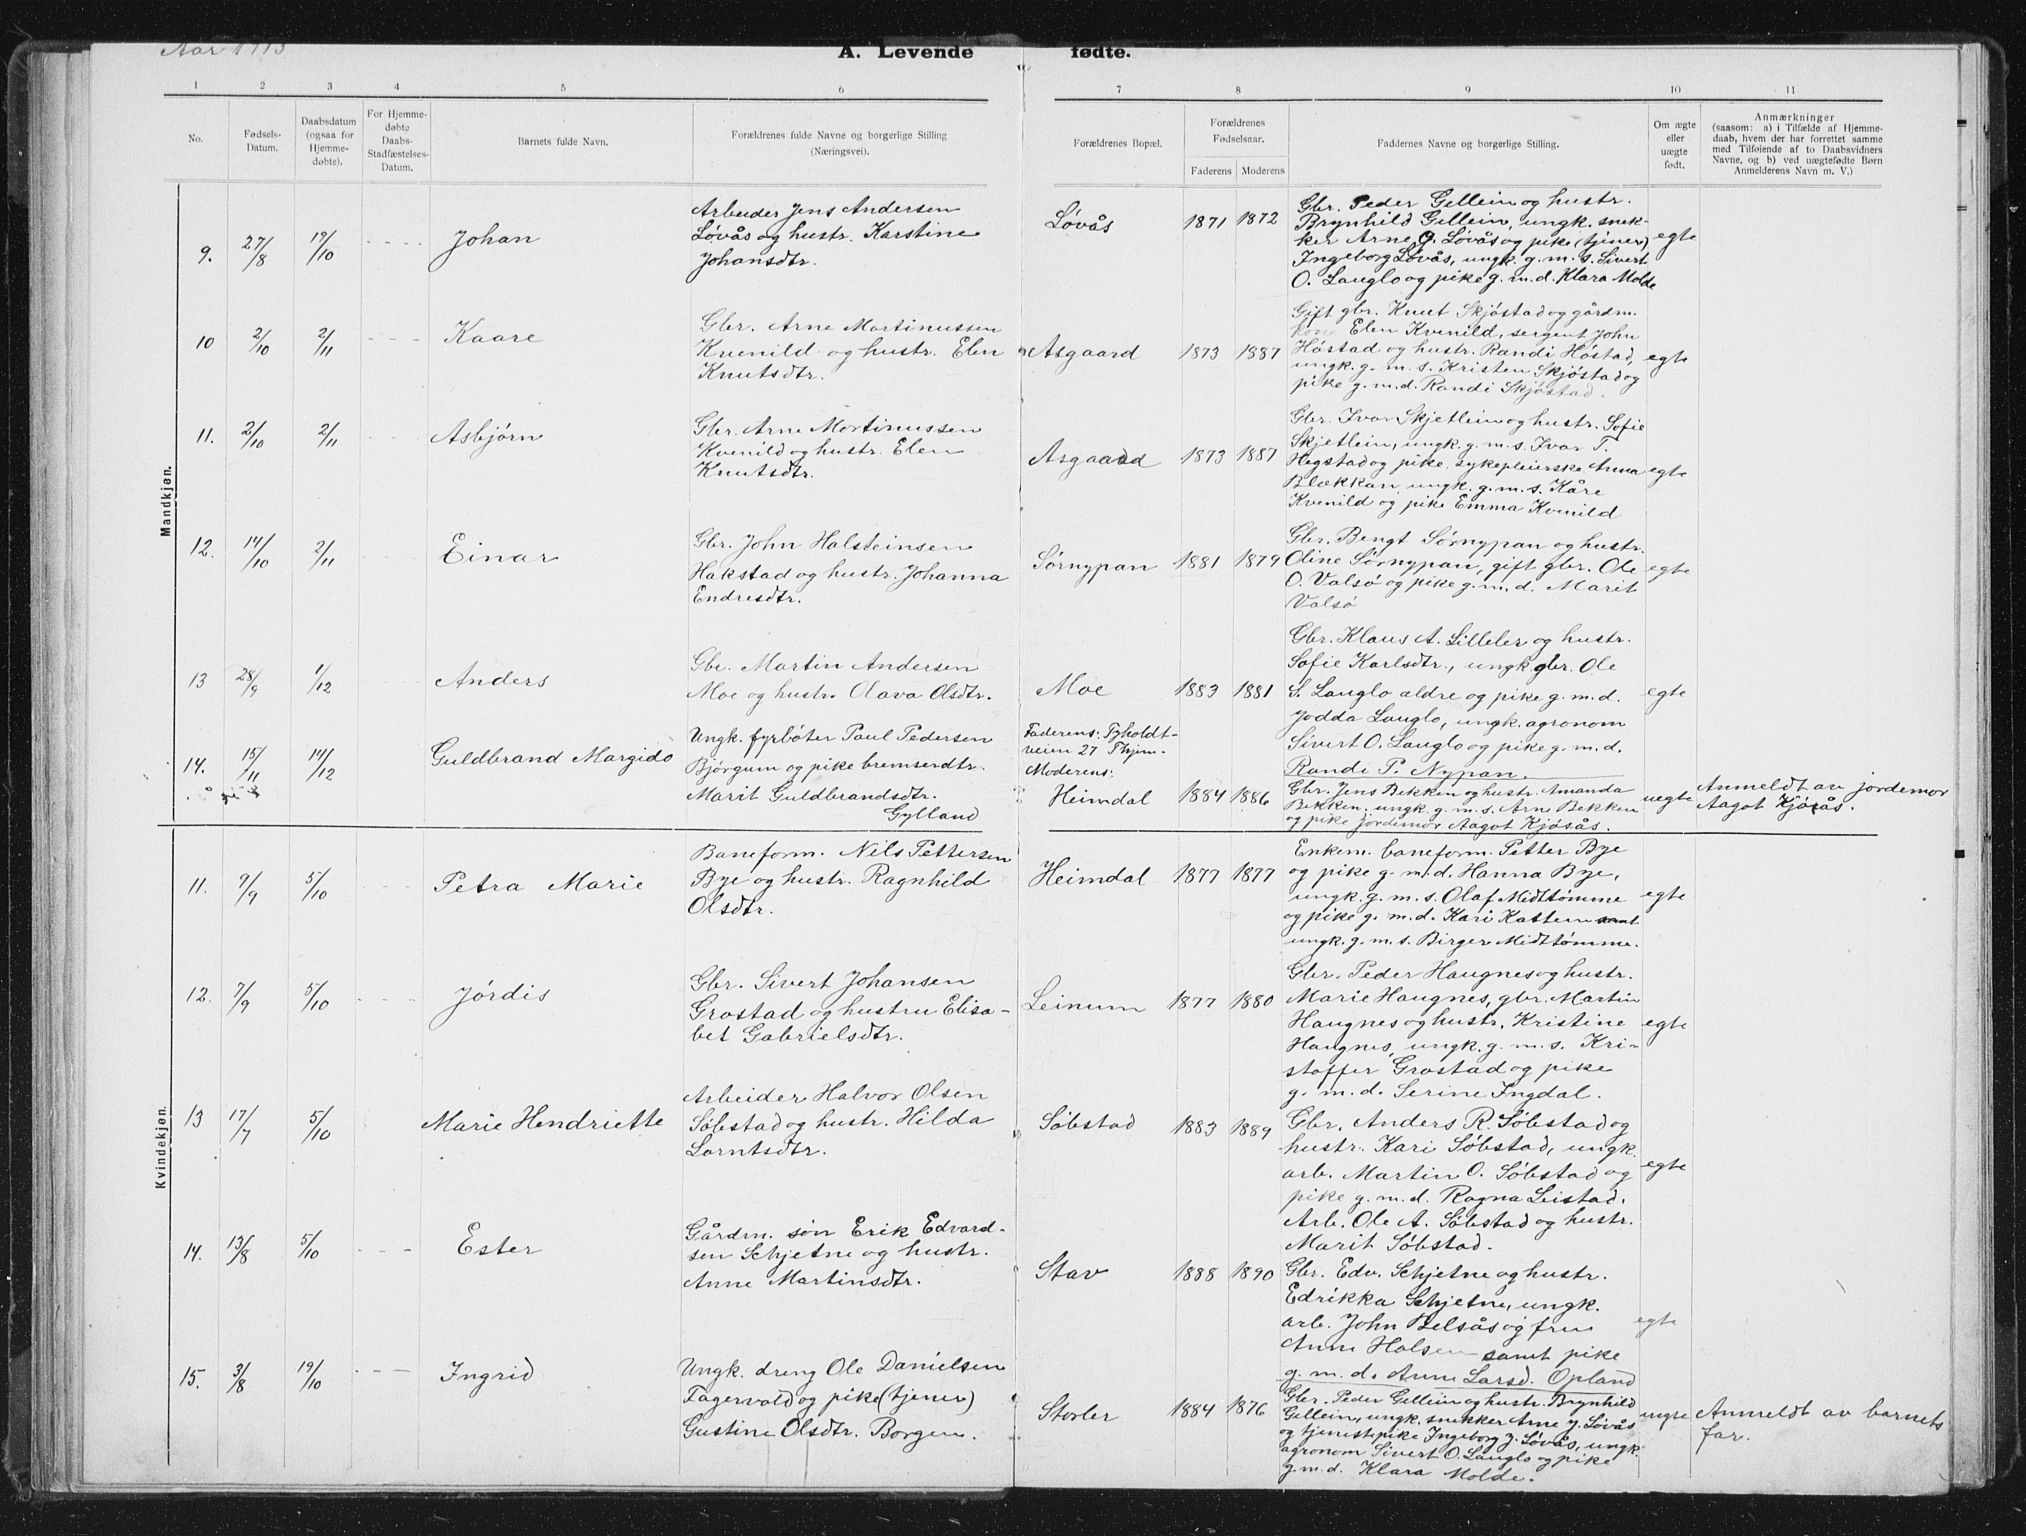 Aar 1913
A. Levende fødte.
1 2 3 4 5 6 7 8 9 10 11
No.
Fødsels-
Datum.
Daabsdatum
(ogsaa for
Hjemme-
døbte).
For Hjemme-
døbte
Daabs-
Stadfæstelses-
Datum.
Barnets fulde Navn.
Forældrenes fulde Navne og borgerlige Stilling
(Næringsvei).
Forældrenes Bopæl.
Forældrenes
Fødselsaar.
Faderens Moderens
Faddernes Navne og borgerlige Stilling.
Om ægte
eller
uægte
født.
Anmærkninger
(saasom: a) i Tilfælde af Hjemme-
daab, hvem der har forrettet samme
med Tilføiende af to Daabsvidners
Navne, og b) ved uægtefødte Børn
Anmelderens Navn m. V.)
Mandkjøn.
9. 27/8 19/10 Johan
Arbeider Jens Andersen
Løvås og hustr. Karstine
Johansdtr.
Løvås 1871 1872
Gbr. Peder Gellein og hustr.
Brynhild Gellein, ungk. snek-
ker Arne J. Løvås og pike (tjener)
Ingeborg Løvås, ungk. g. m. s. Sivert
O. Lauglo og pike g. m. d. Klara Molde
egte
10 2/10 2/11 Kaare
Gbr. Arne Martinussen
Kvenild og hustr. Elen
Knutsdtr.
Asgaard 1873 1887
Gift gbr. Knut Skjøstad og gårdm.
kone Elen Kvenild, sergent John
Høstad og hustr. Randi Høstad,
ungk. g. m. s. Kristen Skjøstad og
pike g. m. d. Randi Skjøstad.
egte
11. 2/10 2/11 Asbjørn
Gbr. Arne Martinussen
Kvenild og hustr. Elen
Knutsdtr.
Asgaard 1873 1887
Gbr. Ivar Skjetlein og hustr. Sofie
Skjetlein, ungk. g. m. s. Ivar T.
Hegstad og pike. sykepleierske Anna
Blekkan, ungk. g. m. s. Kåre
Kvenild og pike Emma Kvenild
egte
12. 14/10 2/11 Einar
Gbr. John Halsteinsen
Hakstad og hustr. Johanna
Endresdtr.
Sørnypan 1881 1879
Gbr. Bengt Sørnypan og hustr.
Oline Sørnypan, gift gbr. Ole
O. Valsø og pike g. m. d. Marit
Valsø
egte
13 28/9 1/12 Anders
Gbr. Martin Andersen
Moe og hustr. Olava Olsdtr.
Moe 1883 1881
Gbr. Klaus A. Lilleler og hustr.
Sofie Karlsdtr., ungk. gbr. Ole
S. Lauglo aldre og pike g. m. d.
Jodda Lauglo, ungk. agronom
Sivert O. Lauglo og pike g. m. d.
Randi P. Nypan.
egte
14. 15/11 14/12 Guldbrand Margido
Ungk. fyrbøter Paul Pedersen
Bjørgum og pike bremserdtr.
Marit Guldbrandsdtr.
Gylland
Faderens: Tyholdt-
veien 27 Thjem.
Moderens:
Heimdal 1884 1886
Gbr. Jens Bekken og hustr. Amanda
Bekken, ungk. g. m. s. Arne Bekken
og pike jordemor Aagot Kjøsås.
uegte
Anmeldt av jordemor
Aagot Kjøsås.
Kvindekjøn.
11. 9/9 5/10 Petra Marie
Baneform. Nils Pettersen
Bye og hustr. Ragnhild
Olsdtr.
Heimdal 1877 1877
Enkem. baneform. Petter Bye
og pike g. m. d. Hanna Bye,
ungk. g. m. s. Olaf Midttømme
og pike g. m. d. Kari Kattem samt
ungk. g. m. s. Birger Midttømme.
egte
12. 7/9 5/10 Jørdis
Gbr. Sivert Johansen
Grostad og hustru Elisa-
bet Gabrielsdtr.
Leinum 1877 1880
Gbr. Peder Haugnes og hustr.
Marie Haugnes, gbr. Martin
Haugnes og hustr. Kristine
Haugnes, ungk. g. m. s. Kri-
stoffer Grostad og pike
g. m. d. Serine Ingdal.
egte
13 17/7 5/10 Marie Hendriette
Arbeider Halvor Olsen
Søbstad og hustr. Hilda
Lorntsdtr.
Søbstad 1883 1889
Gbr. Anders R. Søbstad og
hustr. Kari Søbstad, ungk.
arb. Martin O. Søbstad og
pike g. m. d. Ragna Leistad.
Arb. Ole A. Søbstad og hustr.
Marit Søbstad.
egte
14. 13/8 5/10 Ester
Gårdm. søn Erik Edvard-
sen Schjetne og hustr.
Anne Martinsdtr.
Stav 1888 1890
Gbr. Edv. Schjetne og hustr.
Edrikka Schjetne, ungk.
arb. John Belsås og fru
Anne Halsen samt pike
g. m. d. Anne Larsd. Opland
egte
15. 3/8 19/10 Ingrid
Ungk. dreng Ole Danielsen
Fagervold og pike (tjener)
Gustine Olsdtr. Borgen.
Storler 1884 1876
Gbr. Peder Gellein og hustr. Brynhild
Gellein, ungk. snekker Arne J. Løvås
og tjenestepike Ingeborg J. Løvås, ungk.
agronom Sivert O. Lauglo og pike
g. m. d. Klara Molde.
uegte
Anmeldt av barnets
far.